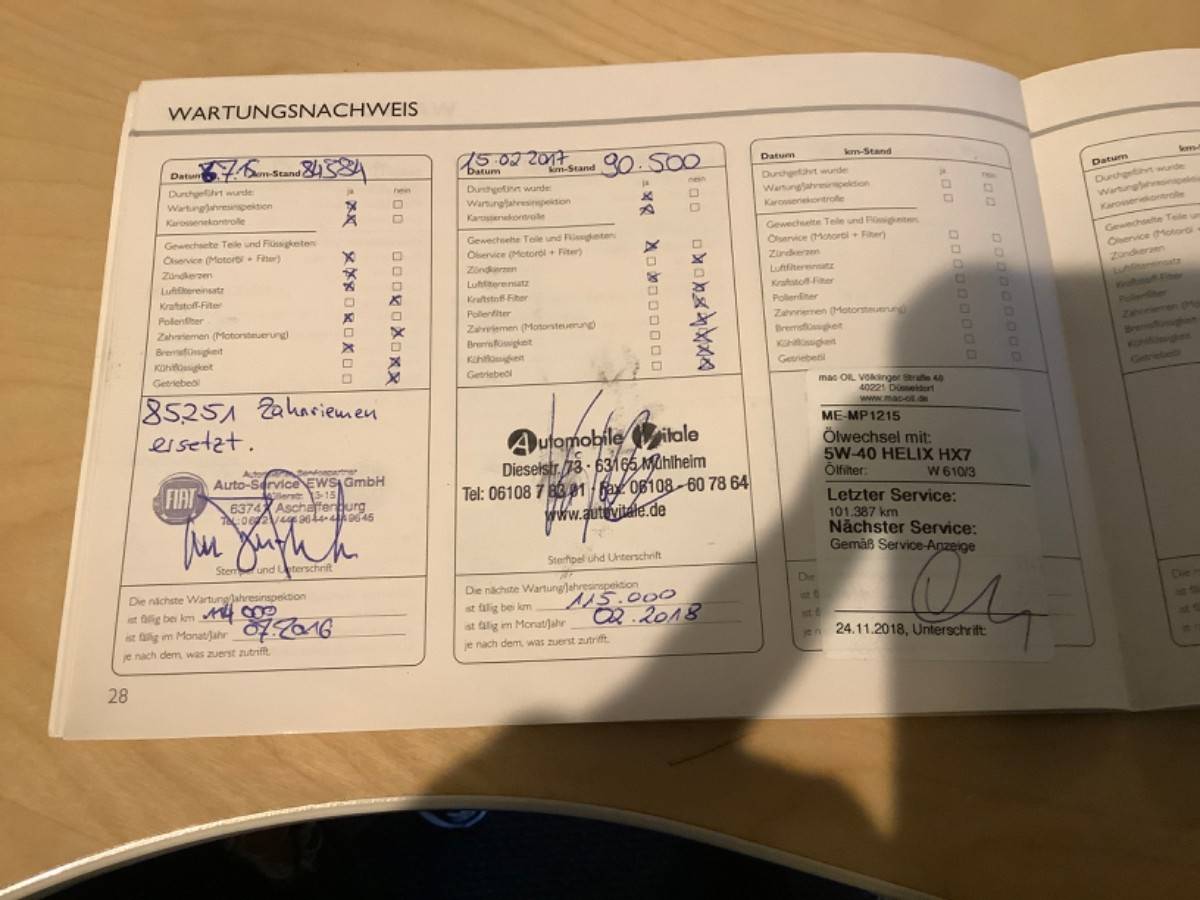 WARTUNGSNACHWEIS
Datum 6.7.15 km-Stand 84584
Durchgeführt wurde: ja nein
Wartung/Jahresinspektion
Karosseriekontrolle
Gewechselte Teile und Flüssigkeiten:
Ölservice (Motoröl + Filter)
Zündkerzen
Luftfiltereinsatz
Kraftstoff-Filter
Pollenfilter
Zahnriemen (Motorsteuerung)
Bremsflüssigkeit
Kühlflüssigkeit
Getriebeöl
85251 Zahnriemen
ersetzt.
FIAT
Auto-Service EWS GmbH
13-15
63741 Aschaffenburg
Stempel und Unterschrift
Die nächste Wartung/Jahresinspektion
ist fällig bei km 114 000
ist fällig im Monat/Jahr 07.2016
je nach dem, was zuerst zutrifft.
28
15.02 2017
Datum km-Stand 90.500
Durchgeführt wurde: ja nein
Wartung/Jahresinspektion
Karosseriekontrolle
Gewechselte Teile und Flüssigkeiten:
Ölservice (Motoröl + Filter)
Zündkerzen
Luftfiltereinsatz
Kraftstoff-Filter
Pollenfilter
Zahnriemen (Motorsteuerung)
Bremsflüssigkeit
Kühlflüssigkeit
Getriebeöl
Automobile Vitale
Dieselstr. 73 · 63165 Mühlheim
Tel: 06108 7 83 01 · Fax: 06108 - 60 78 64
www.autovitale.de
Stempel und Unterschrift
Die nächste Wartung/Jahresinspektion
ist fällig bei km 115.000
ist fällig im Monat/Jahr 02.2018
je nach dem, was zuerst zutrifft.
Datum km-Stand
Durchgeführt wurde: ja nein
Wartung/Jahresinspektion
Karosseriekontrolle
Gewechselte Teile und Flüssigkeiten:
Ölservice (Motoröl + Filter)
Zündkerzen
Luftfiltereinsatz
Kraftstoff-Filter
Pollenfilter
Zahnriemen (Motorsteuerung)
Bremsflüssigkeit
Kühlflüssigkeit
Getriebeöl
mac OIL Völklinger Straße 48
40221 Düsseldorf
www.mac-oil.de
ME-MP1215
Ölwechsel mit:
5W-40 HELIX HX7
Ölfilter: W 610/3
Letzter Service:
101.387 km
Nächster Service:
Gemäß Service-Anzeige
24.11.2018, Unterschrift:
Die
ist f
je n
Datum km-
Durchgeführt wurde:
Wartung/Jahresinspektion
Karosseriekontrolle
Gewechselte Teile und Flüssig
Ölservice (Motoröl + Filter)
Zündkerzen
Luftfiltereinsatz
Kraftstoff-Filter
Pollenfilter
Zahnriemen (Motorsteuer
Bremsflüssigkeit
Kühlflüssigkeit
Getriebeöl